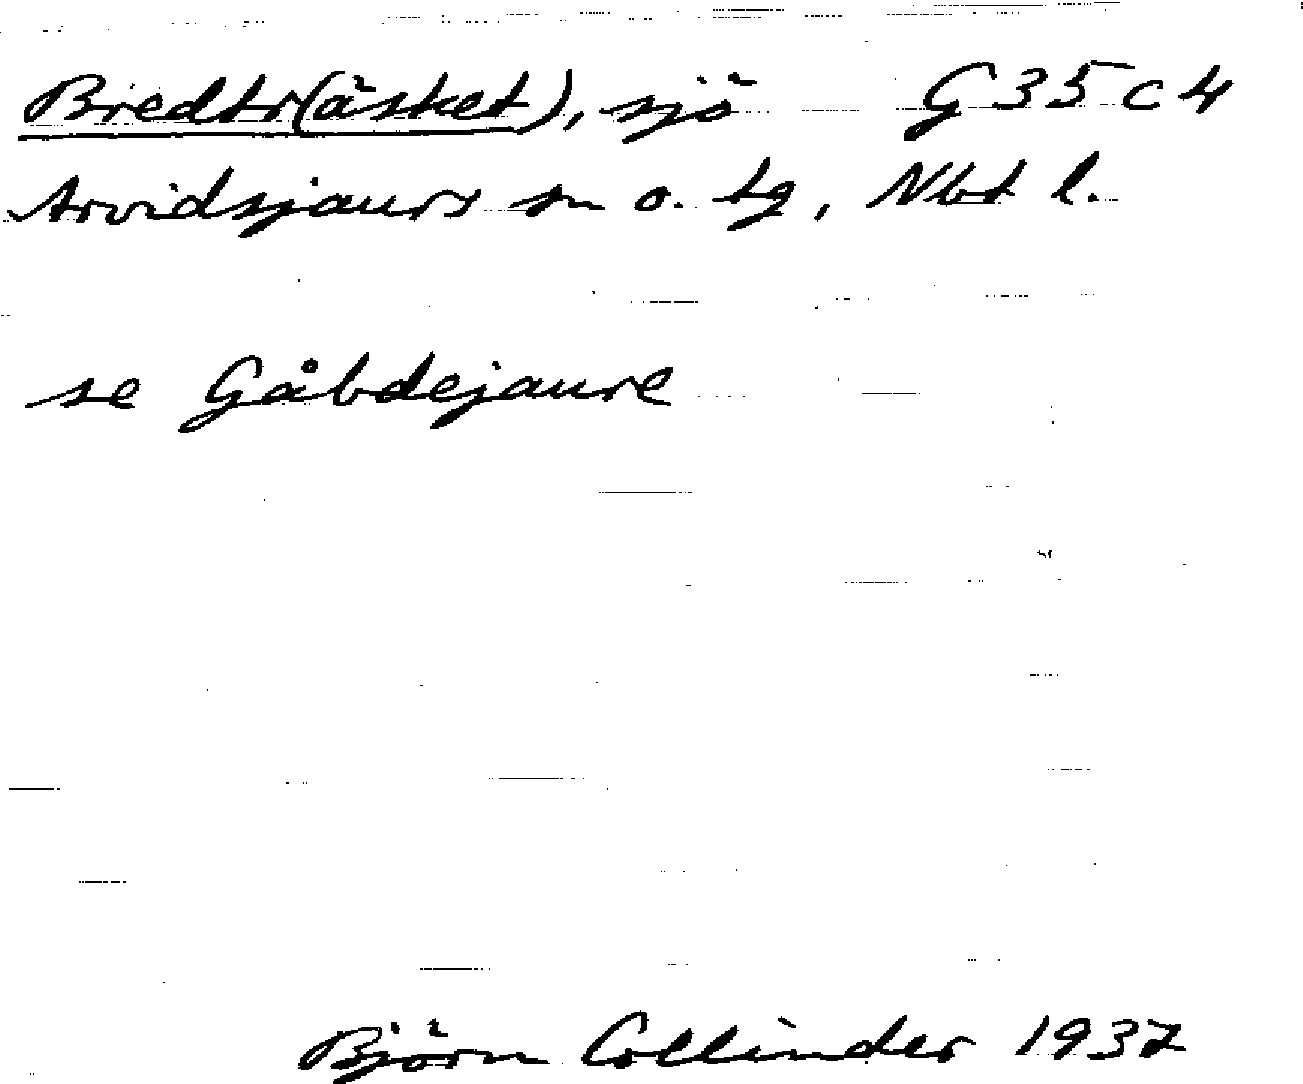 Bredtr(äsket), sjö G 35 c 4
Arvidsjaurs sn o. tg, Nbt l.
se Gåbdejaure
Björn Collinder 1937